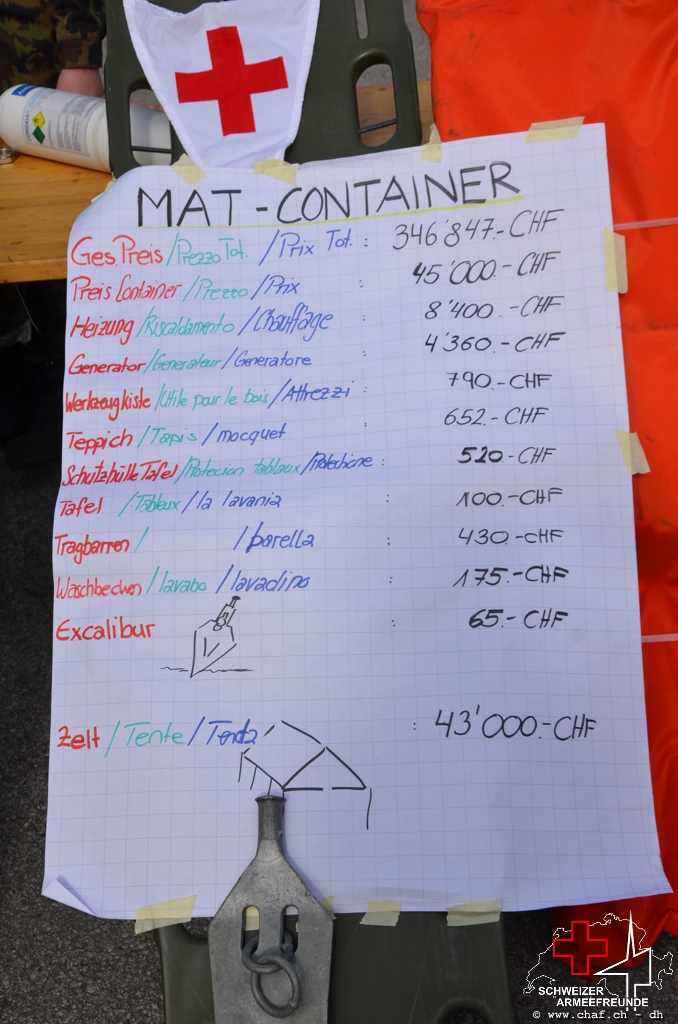 MAT - CONTAINER
Ges Preis / Prezzo Tot. / Prix Tot. : 346'847.- CHF
Preis Container / Prezzo / Prix : 45'000.- CHF
Heizung / Riscaldamento / Chauffage : 8'400.- CHF
Generator / Generateur / Generatore : 4'360.- CHF
Werkzeugkiste / Utile pour le bois / Attrezzi : 790.- CHF
Teppich / Tapis / mocquet : 652.- CHF
Schutzhülle Tafel / Protecion tablaux / Protezione : 520.- CHF
Tafel / Tableux / la lavania : 100.- CHF
Tragbarren / / barella : 430.- CHF
Waschbecken / lavabo / lavadino : 175.- CHF
Excalibur : 65.- CHF
Zelt / Tente / Tenda : 43'000.- CHF
SCHWEIZER
ARMEEFREUNDE
© www.chaf.ch - dh